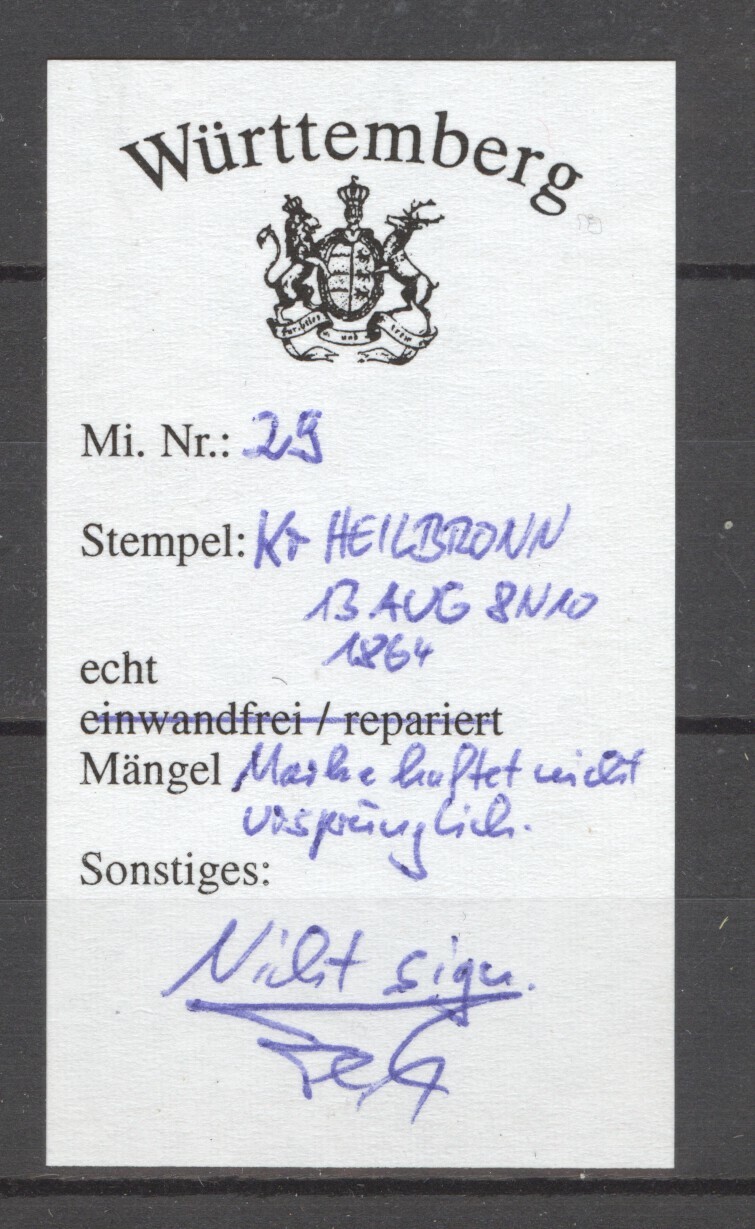 Württemberg
furchtlos und trew
Mi. Nr.: 29
Stempel: Kr HEILBRONN
13 AUG 8N10
1864
echt
einwandfrei / repariert
Mängel Marke haftet nicht
ursprünglich.
Sonstiges:
Nicht sign.